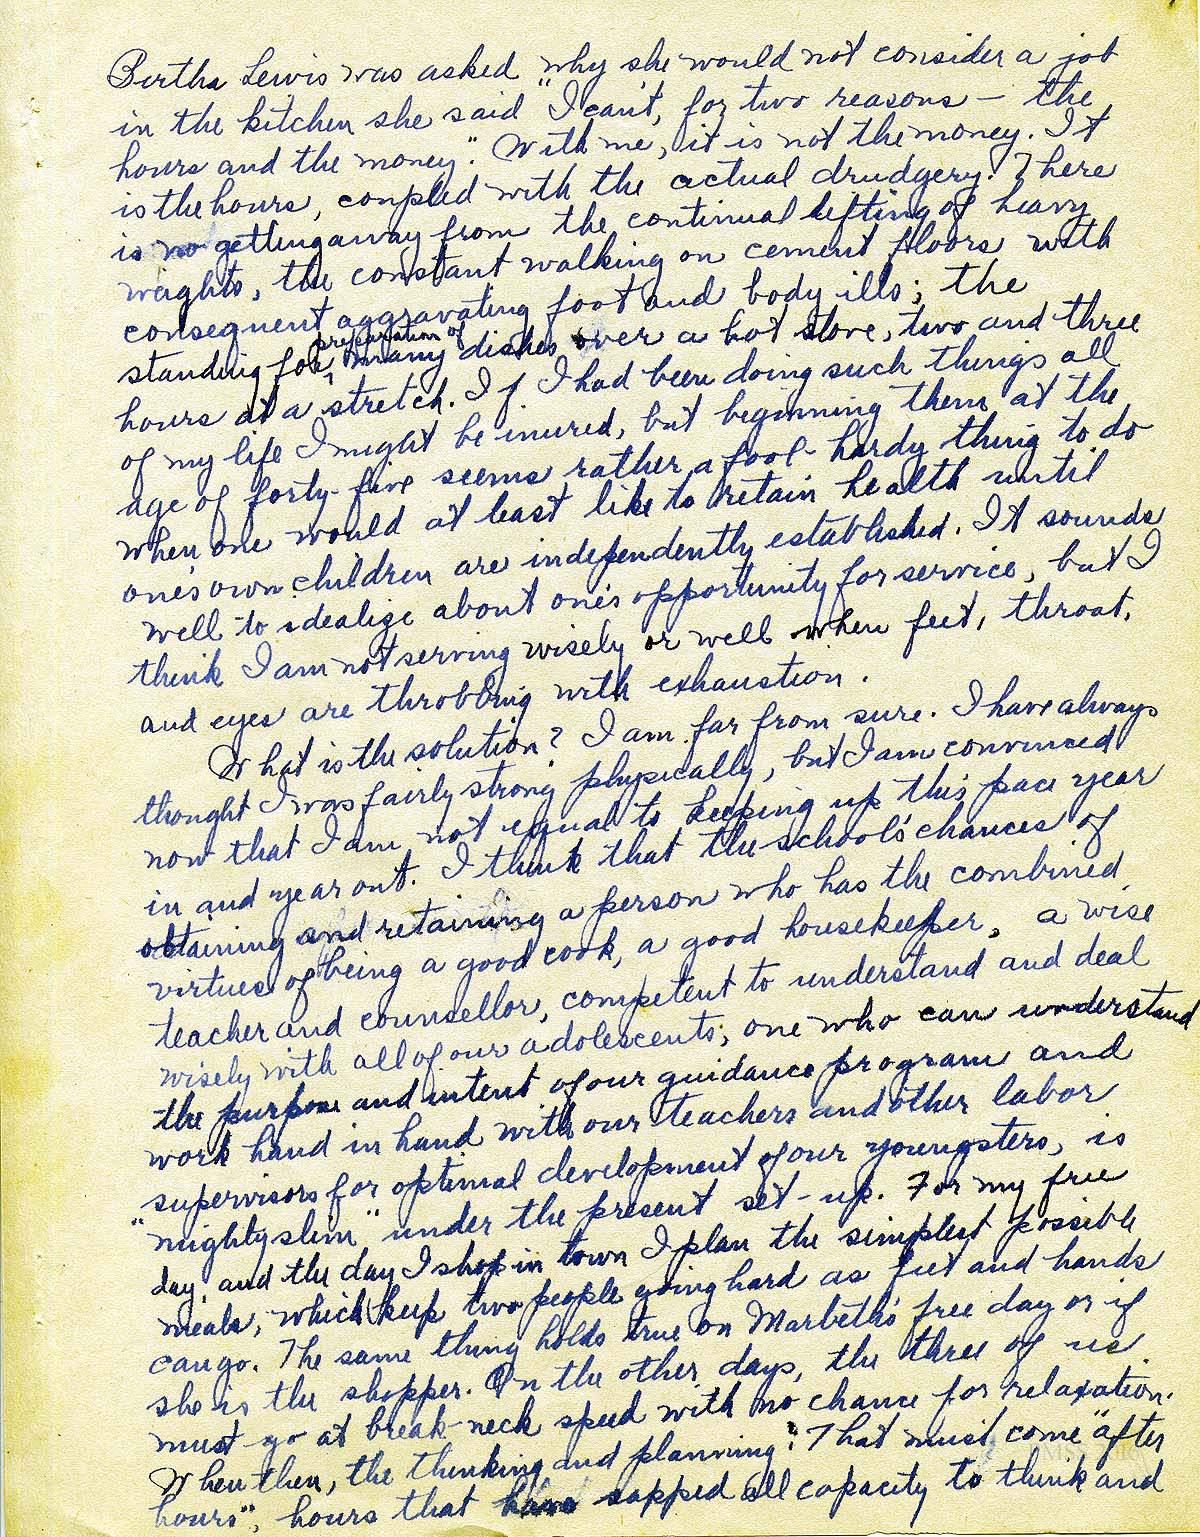 Bertha Lewis was asked "why she would not consider a job
in the kitchen she said "I can't, for two reasons – the
hours and the money." With me, it is not the money. It
is the hours, coupled with the actual drudgery. There
is no getting away from the continual lifting of heavy
weights, the constant walking on cement floors with
consequent aggravating foot and body ills; the
preparation of
standing for many dishes over a hot stove, two and three
hours at a stretch. If I had been doing such things all
of my life I might be inured, but beginning them at the
age of forty-five seems rather a fool-hardy thing to do
when one would at least like to retain health until
one's own children are independently established. It sounds
well to idealize about one's opportunity for service, but I
think I am not serving wisely or well when feet, throat,
and eyes are throbbing with exhaustion.
What is the solution? I am far from sure. I have always
thought I was fairly strong physically, but I am convinced
now that I am not equal to keeping up this pace year
in and year out. I think that the school's chances of
obtaining and retaining a person who has the combined
virtues of being a good cook, a good housekeeper, a wise
teacher and counsellor, competent to understand and deal
wisely with all of our adolescents; one who can understand
the purpose and intent of our guidance program and
work hand in hand with our teachers and other labor
supervisors for optimal development of our youngsters, is
"mighty slim" under the present set-up. For my free
day, and the day I shop in town I plan the simplest possible
meals, which keep two people going hard as feet and hands
can go. The same thing holds true on Marbeth's free day or if
she is the shopper. On the other days, the three of us
must go at break-neck speed with no chance for relaxation.
When then, the thinking and planning? That must come "after
hours", hours that have sapped all capacity to think and